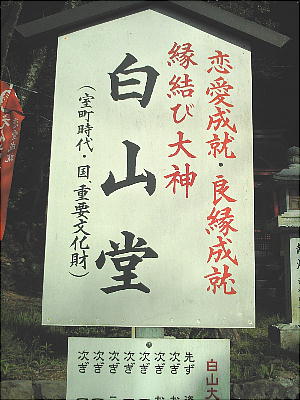 恋愛成就・良縁成就
縁結び大神
白山堂
(室町時代・国、重要文化財)
白山大
先ず
次ぎ
次ぎ
次ぎ
次ぎ
次ぎ
次ぎ
次ぎ